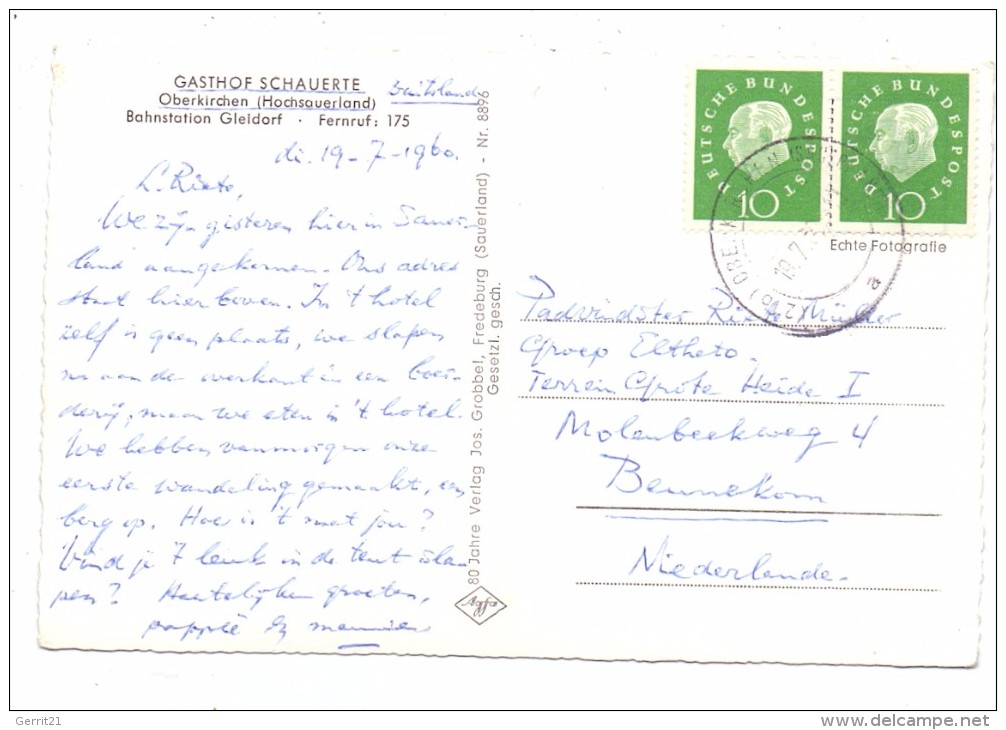 GASTHOF SCHAUERTE
Oberkirchen (Hochsauerland)
Bahnstation Gleidorf · Fernruf: 175
di. 19-7-1960.
L. Riete,
We zijn gisteren hier in Sauer-
land aangekomen. Ons adres
staat hier boven. In 't hotel
zelf is geen plaats, we slapen
nu aan de overkant in een boer-
derij, maar we eten in 't hotel.
We hebben vanmorgen onze
eerste wandeling gemaakt, een
berg op. Hoe is 't met jou?
Vind je 't leuk in de tent sla-
pen? Hartelijke groeten,
pappie en mammie
80 Jahre Verlag Jos. Grobbel, Fredeburg (Sauerland) - Nr. 8896
Gesetzl. gesch.
Agfa
DEUTSCHE BUNDESPOST
10
DEUTSCHE BUNDESPOST
10
Echte Fotografie
a
Padvindster Riete Mulder
Groep Eltheto.
Terrein Grote Heide I
Molenbeekweg 4
Bennekom
Niederlande.
Gerrit21
www.delcampe.net